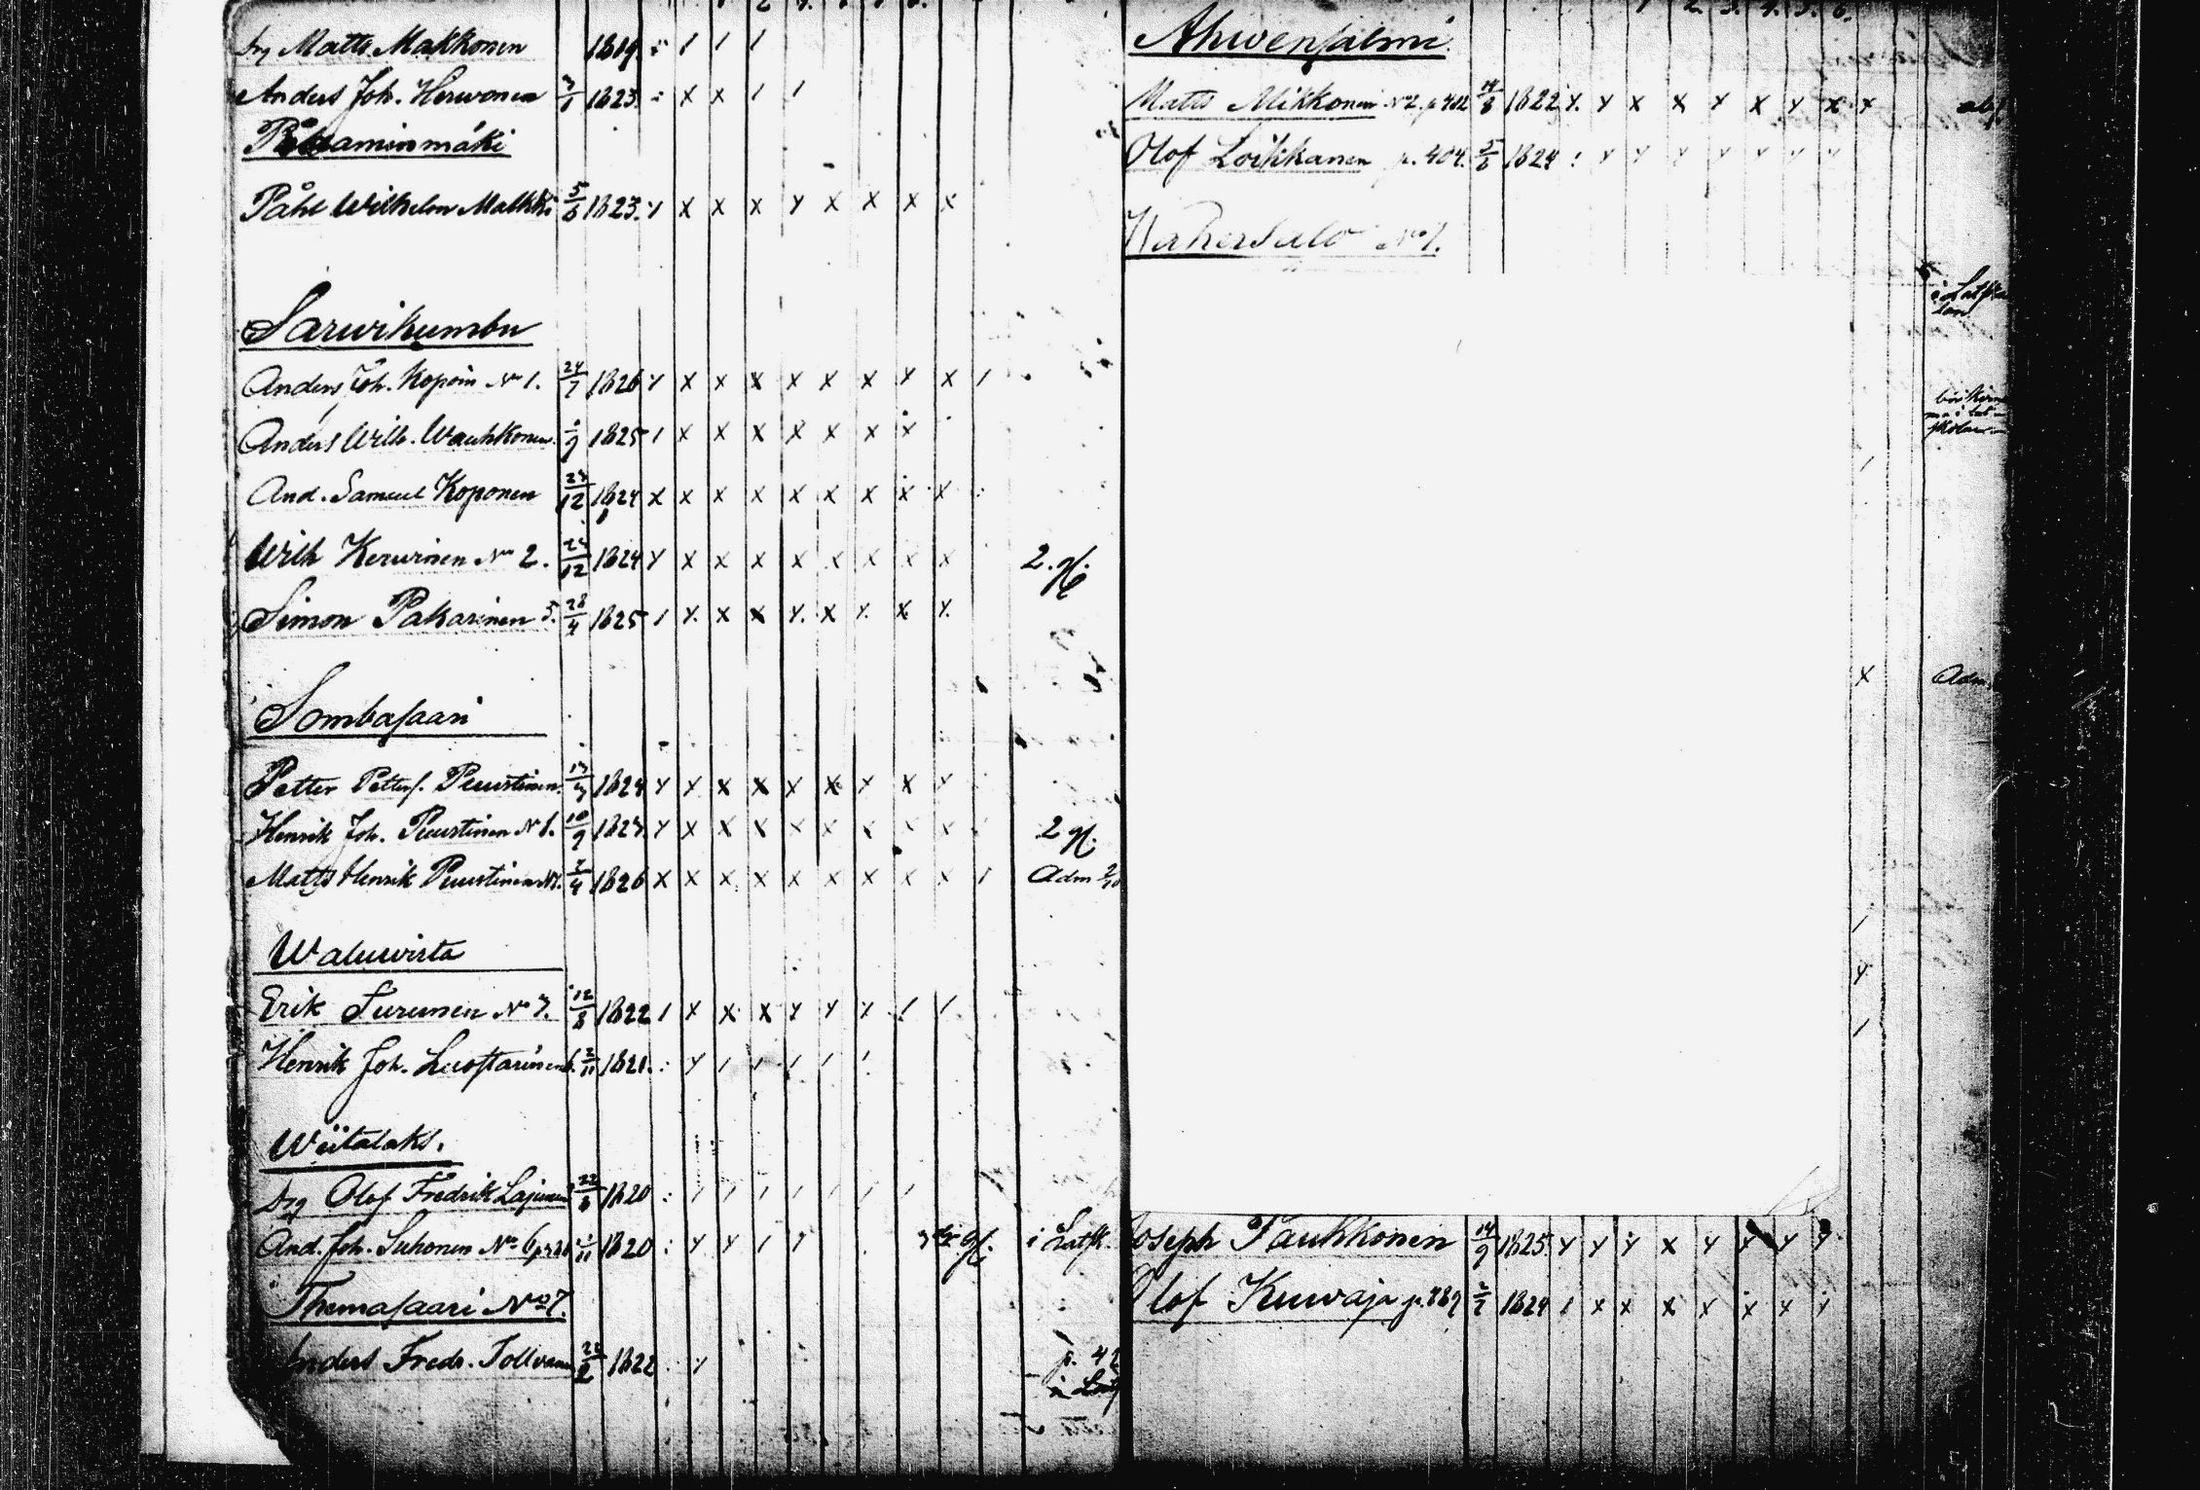 Drg Matts Makkonen 1819. : / / /
Anders Joh. Herwonen 1823. : x x / /
minmäki
Påhl Wilhelm Malkki 5/6 1823. y x x x y x x x x
Sarwikumbu
Anders Joh. Kopoin No 1. 24/7 1826 y x x x x x x y x /
Anders Wilh. Wauhkonen 1825 / x x x x x x x
And. Samuel Koponen 23/12 1824 x x x x x x x x x
Wilh Kerwinen No 2. 23/12 1824 y x x x x x x x x 2. gf.
Simon Pakarinen 5. 28/4 1825 / y. x x y. x y. x y.
Sombasaari
Petter Petters. Puustinen 1824 y y x x y x x x y
Henrik Joh. Puustinen N 1. 10/9 1824 y x x x x x x x x 2 gf.
Matts Henrik Puustinen 1826 x x x x x x x x x / Adm
Waluwirta
Erik Surunen No 7. 12/8 1822 / x x x y y y / /
Henrik Joh. Luostarinen 2/11 1821. : y / / / / /
Wiitalaks.
Drg Olof Fredrik Lajunen 22/8 1820 : / / / / / / /
And. Joh. Suhonen No 6 1820 : y y / y gf. i Latsk.
Themasaari No 7.
Anders Fredr. Tollvanen 1822 : y p. 42
Ahwensalmi
Matts Mikkonen No 2. p 412 14/8 1822 y. y x x x x y x x
Olof Loikkanen p. 404. 5/6 1824 : y y y y y y y
Kakersalo No 1.
i
X Adm
Joseph Paukkonen 14/9 1825 y y y x y y y y
Olof Kuwaja p. 489 2/7 1824 / x x x x x x y